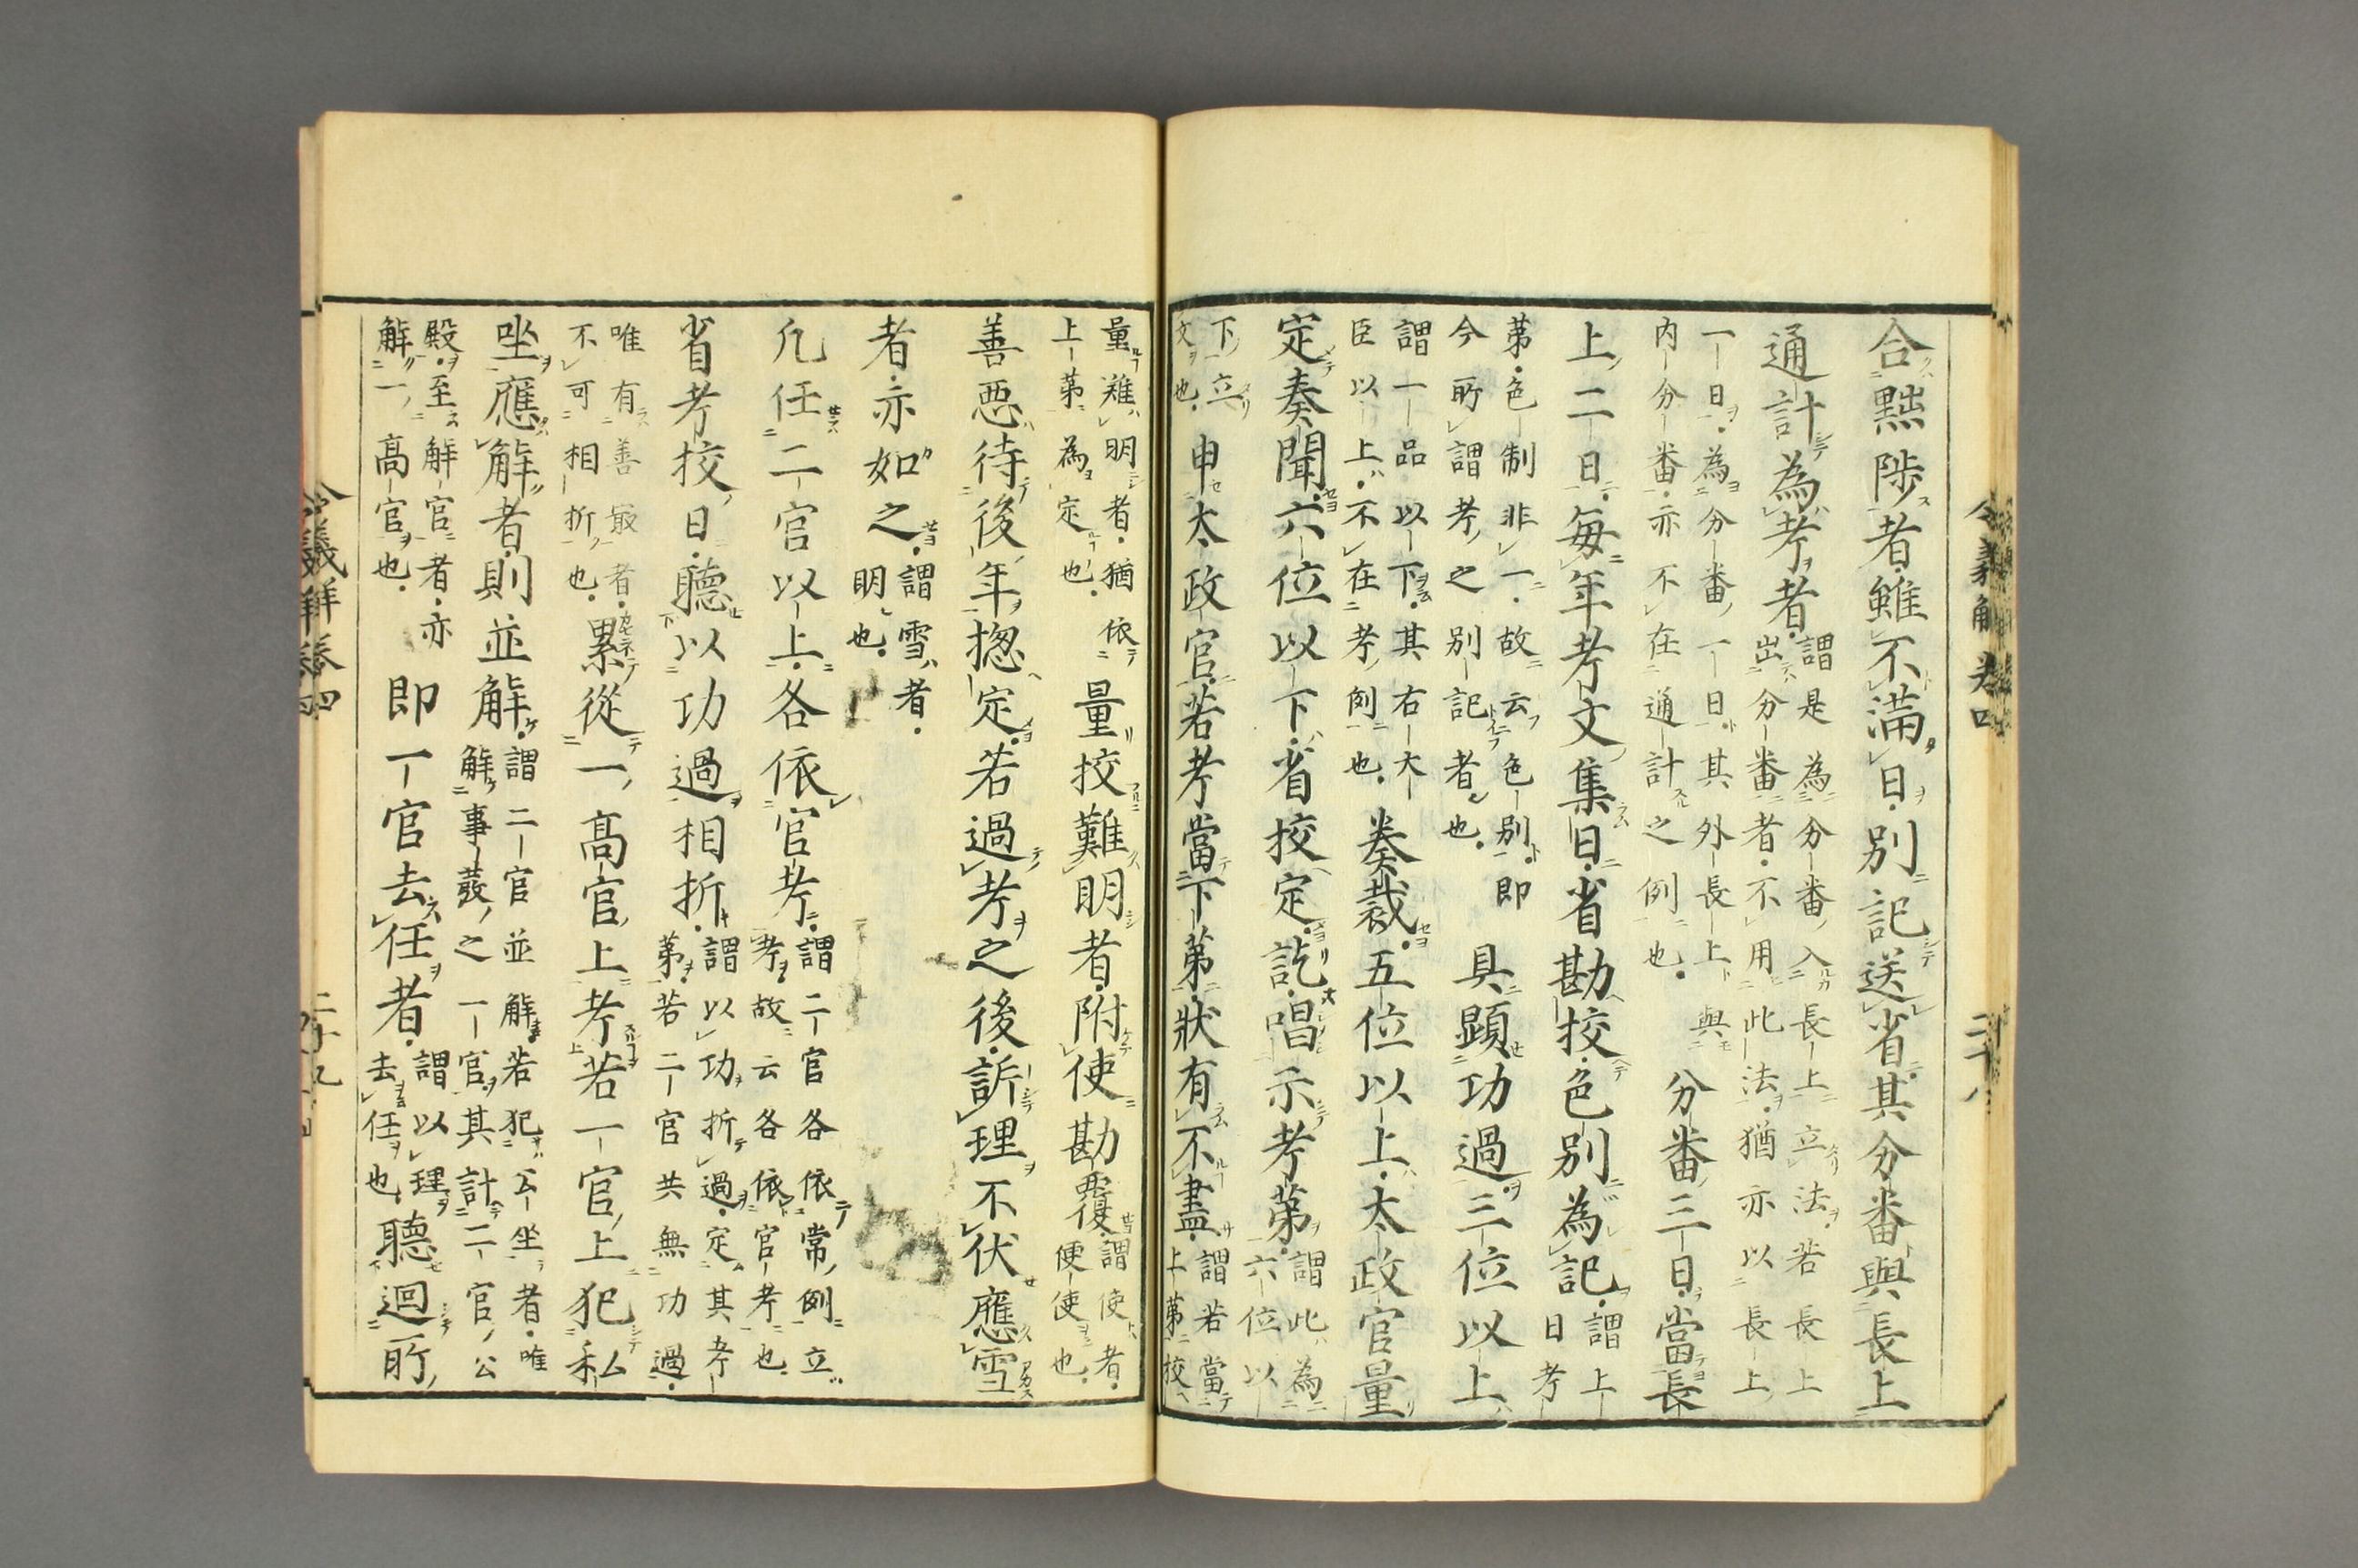 合黜陟者雖不滿日別記送省其分番與長上
通計為考者謂是為分番入長上立法若長上
出分番者不用此法猶亦以長上
一日為分番一日其外長上與
内分番亦不在通計之例也分番三日當長
上二日毎年考文集日省勘挍色別為記謂上
日考
第色制非一故云色別即
今所謂考之別記者也具顕功過三位以上
謂一品以下其右大
臣以上不在考例也奏裁五位以上太政官量
定奏聞六位以下省挍定訖唱示考第謂此為
六位以
下立
文也申太政官若考當下第狀有不盡謂若當
上第挍
量難明者猶依
上第為定也量挍難明者附使勘覆謂使者
便使也
善悪待後年惣定若過考之後訴理不伏應雪
者亦如之謂雪者
明也
凢任二官以上各依官考謂二官各依常例立
考故云各依官考也
省考挍日聽以功過相折謂以功折過定其考
第若二官共無功過
唯有善最者
不可相折也累從一高官上考若一官上犯私
坐應解者則並解謂二官並解若犯公坐者唯
解事發之一官其計二官公
殿至解官者亦
解一高官也即一官去任者謂以理
去任也聽迴所
令義解巻四
二十九